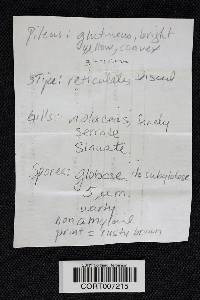 Pileus: glutinous, bright
yellow, convex
Stipe: reticulate, viscid
Gills: violaceous, finely
serrate
Sinuate
Spores: globose to subglobose
5 µm
warty
non amyloid
print = rusty brown
CORT007215